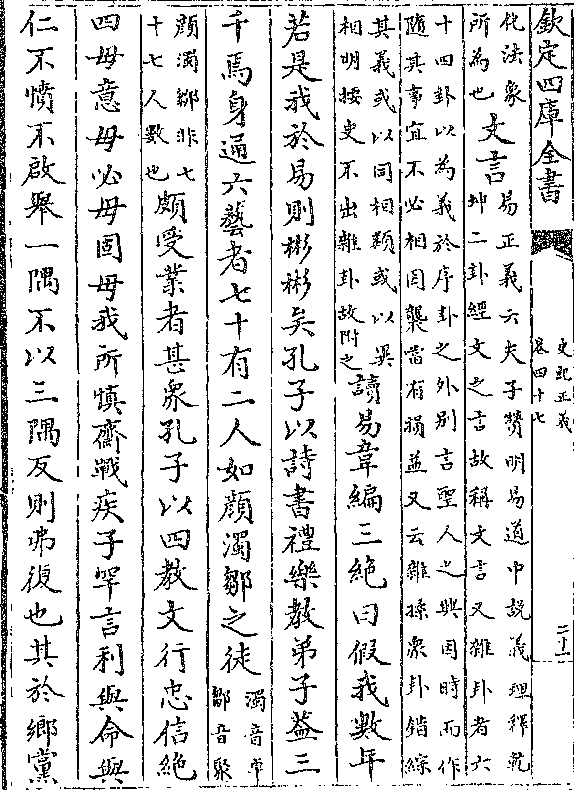 欽定四庫全書
史記正義
卷四十七
化法象
所為也
文言
易正義云夫子贊明易道申說義理釋乾
坤二卦經文之言故稱文言又雜卦者六
十四卦以為義於序卦之外別言聖人之興因時而作
隨其事宜不必相因襲當有損益又云雜揉衆卦錯綜
其義或以同相類或以異
相明按史不出雜卦故附之
讀易韋編三絕曰假我數年
若是我於易則彬彬矣孔子以詩書禮樂教弟子蓋三
千焉身通六藝者七十有二人如顔濁鄒之徒
濁音卓
鄒音聚
顔濁鄒非七
十七人數也
頗受業者甚衆孔子以四教文行忠信絶
四毋意毋必毋固毋我所慎齋戰疾子罕言利與命與
仁不憤不啟舉一隅不以三隅反則弗復也其於鄉黨